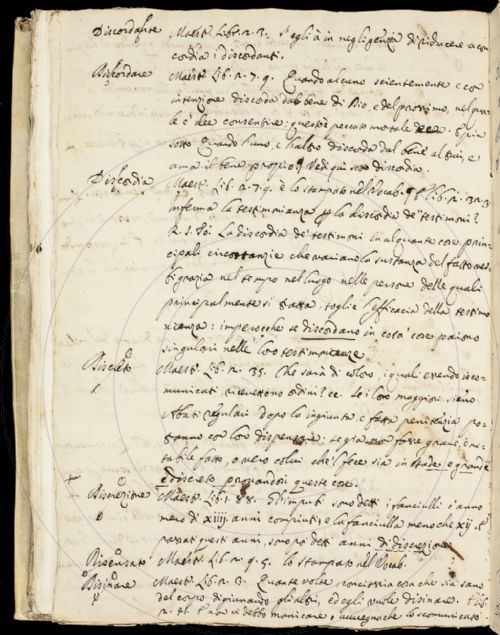 Discordante Maest. Libr. 2. 3. S' egli à in negligenza di riducere a con
cordia i discordanti.
Discordare Maest. Lib. 2. 7. 9. Quando alcuno scientemente e con
intenzione discorda dal bene di Dio, e del prossimo, nel qua
le e' dee consentire, questo è peccato mortale. E più
sotto Quando l'uno, e l'altro discorda dal bene altrui, e
ama il bene proprio. Vedi più sotto discordia
Discordia Maest. Lib. 2. 7. 9. è lo stampato nel Vocab. lib. 2. 30. 3
inferma la testimonianza la discordia de' testimoni?
La discordia de' testimoni in alquante cose prin
cipali circostanzie che variano la sustanza del fatto
tigrazia nel tempo nel luogo nelle persone delle quali
principalmente si tratta, toglie l'efficacia della testimo
nianza: imperocchè se discordano in cotà cose paiono
singulari nelle loro testimonianze
Discreto Maest. Lib. 2. 35. Che sarà di coloro, i quali essendo iscor
municati, ricevettono ordini? se i loro maggiori, sieno
Abati regulari dopo la ingiunta e fatta penitenzia por
ranno con loro dispensare, se già non fosse grave, e no
tabile fatto, o vero colui che 'l fece sia in etade, e grande
e discreto provandosi queste cose.
Discrezione Maest. Lib. 1. 88. Gl' imputi sono detti i fanciulli c' anno
meno di xiiij. anni compiuti, e la fanciulla meno che xij. e
passati questi anni, sono detti anni di discrezione
Disensato Maest. Lib. 2. 9. 5. lo stampato nel Vocab.
Disinare Maest. Lib. 2. 3. Quante volte comincia con che sia sano
del corpo digiunando gli altri, ed egli vuole disinare.
debbo manicare, avvegnachè lo scomunicato